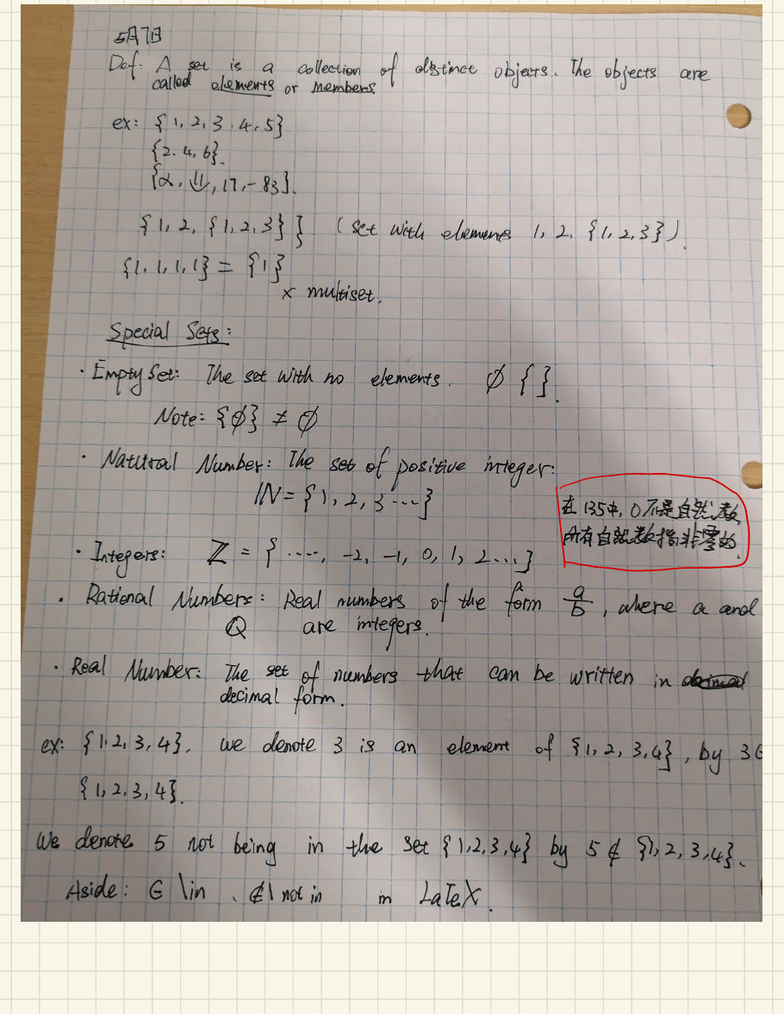 5月7日
Def: A set is a collection of distinct objects. The objects are
called elements or members
ex: {1, 2, 3, 4, 5}
{2, 4, 6}.
{α, 山, 17, -83}.
{1, 2, {1, 2, 3}} (set with elements 1, 2, {1, 2, 3}).
{1, 1, 1, 1} = {1}
× multiset.
Special Sets:
· Empty Set: The set with no elements. ∅ { }.
Note: {∅} ≠ ∅
· Natural Number: The set of positive integer:
ℕ = {1, 2, 3 ...}
在135中, 0不是自然数,
所有自然数指非零的.
· Integers: ℤ = { ...., -2, -1, 0, 1, 2...}
· Rational Numbers: Real numbers of the form a/b, where a and
ℚ are integers.
· Real Number: The set of numbers that can be written in
decimal form.
ex: {1, 2, 3, 4}. we denote 3 is an element of {1, 2, 3, 4}, by 3∈
{1, 2, 3, 4}.
We denote 5 not being in the set {1, 2, 3, 4} by 5 ∉ {1, 2, 3, 4}.
Aside: ∈ \in . ∉ \not in in LaTeX.